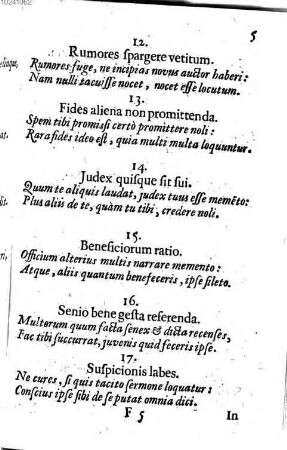 10241062
5
12.
Rumores spargere vetitum.
Rumores fuge, ne incipias novus auctor haberi:
Nam nulli tacuisse nocet, nocet esse locutum.
13.
Fides aliena non promittenda.
Spem tibi promissi certò promittere noli:
Rara fides ideo est, quia multi multa loquuntur.
14.
Judex quisque sit sui.
Quum te aliquis laudat, judex tuus esse memēto:
Plus aliis de te, quàm tu tibi, credere noli.
15.
Beneficiorum ratio.
Officium alterius multis narrare memento:
Atque, aliis quantum benefeceris, ipse sileto.
16.
Senio bene gesta referenda.
Multorum quum facta senex & dicta recenses,
Fac tibi succurrat, juvenis quid feceris ipse.
17.
Suspicionis labes.
Ne cures, si quis tacito sermone loquatur:
Conscius ipse sibi de se putat omnia dici.
F 5
In